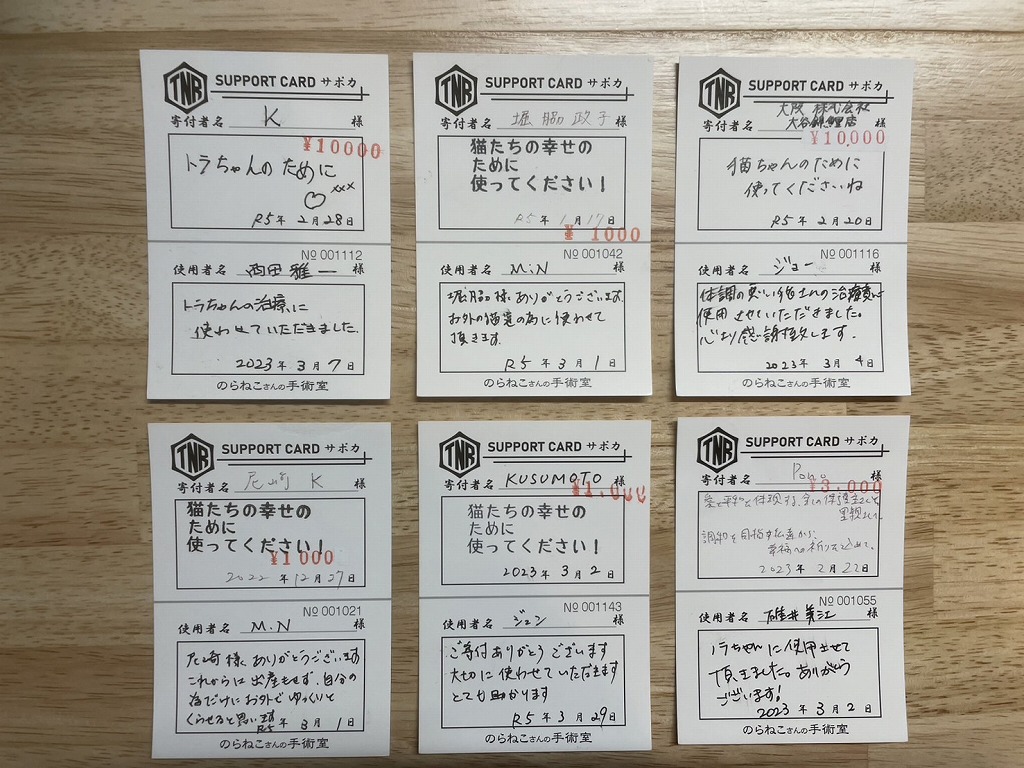 TNR SUPPORT CARD サポカ
寄付者名 K 様
¥10000
トラちゃんのために
♡xxx
R5年 2月28日
№001112
使用者名 西田 雅一 様
トラちゃんの治療に
使わせていただきました。
2023年 3月 7日
のらねこさんの手術室
TNR SUPPORT CARD サポカ
寄付者名 堀脇 政子 様
猫たちの幸せの
ために
使ってください！
R5年 1月17日
¥ 1000
№001042
使用者名 M.N 様
堀脇様、ありがとうございます。
お外の猫達の為に使わせて
頂きます。
R5年 3月 1日
のらねこさんの手術室
TNR SUPPORT CARD サポカ
大阪 株式会社
寄付者名 大谷錦鯉店 様
¥10,000
猫ちゃんのために
使ってくださいね
R5年 2月20日
№001116
使用者名 ジョー 様
体調の悪い猫さんの治療費に
使用させていただきました。
心より感謝致します。
2023年 3月 4日
のらねこさんの手術室
TNR SUPPORT CARD サポカ
寄付者名 尼崎 K 様
猫たちの幸せの
ために
使ってください！
¥1000
2022年12月27日
№001021
使用者名 M.N 様
尼崎様、ありがとうございます
これからは出産もせず、自分の
為だけにお外でゆっくりと
くらせると思います
R5年 3月 1日
のらねこさんの手術室
TNR SUPPORT CARD サポカ
寄付者名 KUSUMOTO 様
¥1,000
猫たちの幸せの
ために
使ってください！
2023年 3月 2日
№001143
使用者名 ジュン 様
ご寄付ありがとうございます
大切に使わせていただきます
とても助かります
R5年 3月29日
のらねこさんの手術室
TNR SUPPORT CARD サポカ
寄付者名 Pono 様
¥3,000
愛と平和を体現する
里親さんへ
調和を目指す
幸福への祈りを込めて。
2023年 2月22日
№001055
使用者名 碓井 美江 様
ノラちゃんに使用させて
頂きました。ありがとう
ございます！
2023年 3月 2日
のらねこさんの手術室